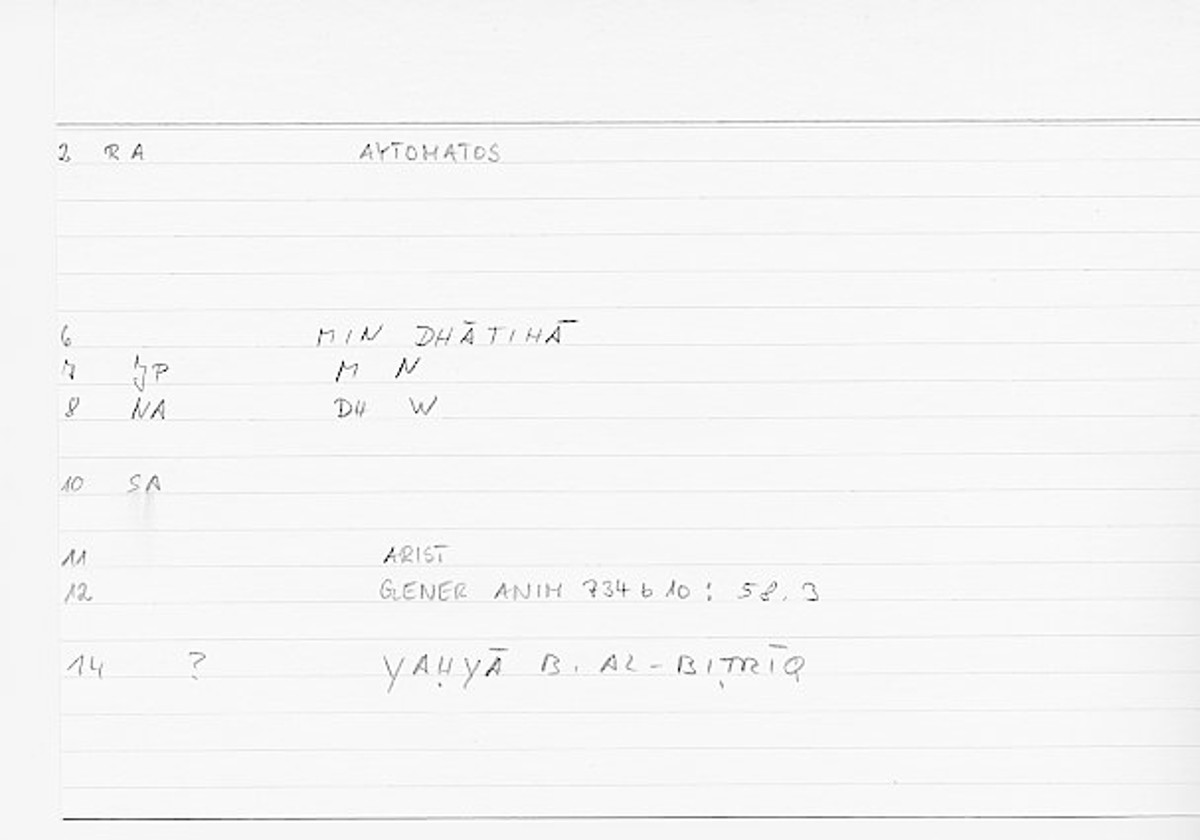 2 RA AYTOMATOS
6 MIN DHĀTIHĀ
7 JP M N
8 NA DH W
10 SA
11 ARIST
12 GENER ANIM 734 b 10 : 58.3
14 ? YAḤYĀ B. AL-BIṬRĪQ